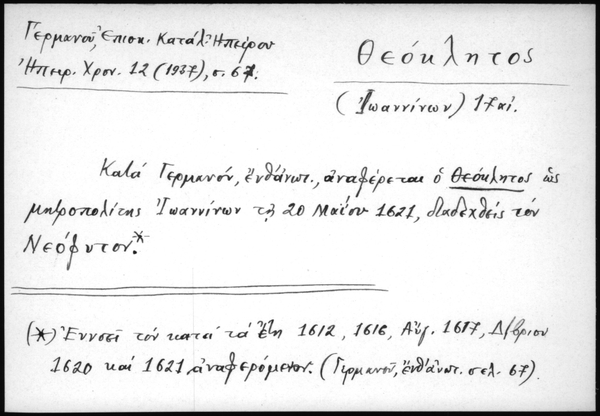 Γερμανοῦ, Ἐπισκ. Κατάλ. Ἠπείρου
Ἠπειρ. Χρον. 12 (1937), σ. 67.
Θεόκλητος
(Ἰωαννίνων) 17 αἰ.
Κατά Γερμανόν, ἔνθ᾽ ἀνωτ., ἀναφέρεται ὁ Θεόκλητος ὡς
μητροπολίτης Ἰωαννίνων τῇ 20 Μαΐου 1621, διαδεχθείς τόν
Νεόφυτον.*
(*) Ἐννοεῖ τόν κατά τά ἔτη 1612, 1616, Αὔγ. 1617, Δ/βριον
1620 καί 1621 ἀναφερόμενον. (Γερμανοῦ, ἔνθ᾽ ἀνωτ. σελ. 67).